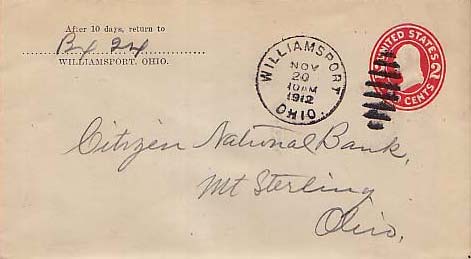 After 10 days, return to
Bx 24
WILLIAMSPORT, OHIO.
WILLIAMSPORT
NOV
20
10 AM
1912
OHIO.
UNITED STATES
2 CENTS
Citizen National Bank,
Mt Sterling
Ohio,